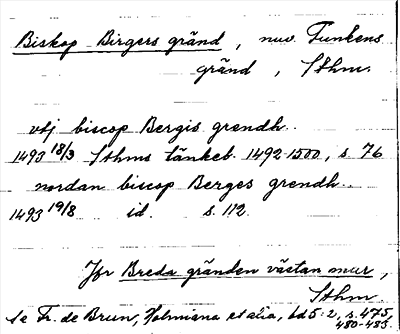 Biskop Birgers gränd, nuv. Funkens
gränd, Sthm.
vtj biscop Bergis grendh..
1493 18/3 Sthms tänkeb. 1492-1500, s. 76
nordan biscop Berges grendh..
1493 19/8 id. s. 112
Jfr Breda gränden västan mur,
Sthm.
Se Fr. de Brun, Holmiana et alia, bd 5:2, s. 475,
480-485.